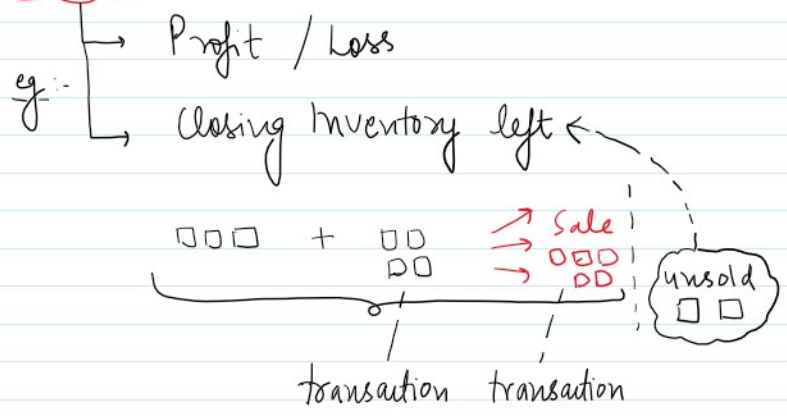 → Profit / Loss
eg :-
→ Closing Inventory left
+
Sale
unsold
transaction transaction